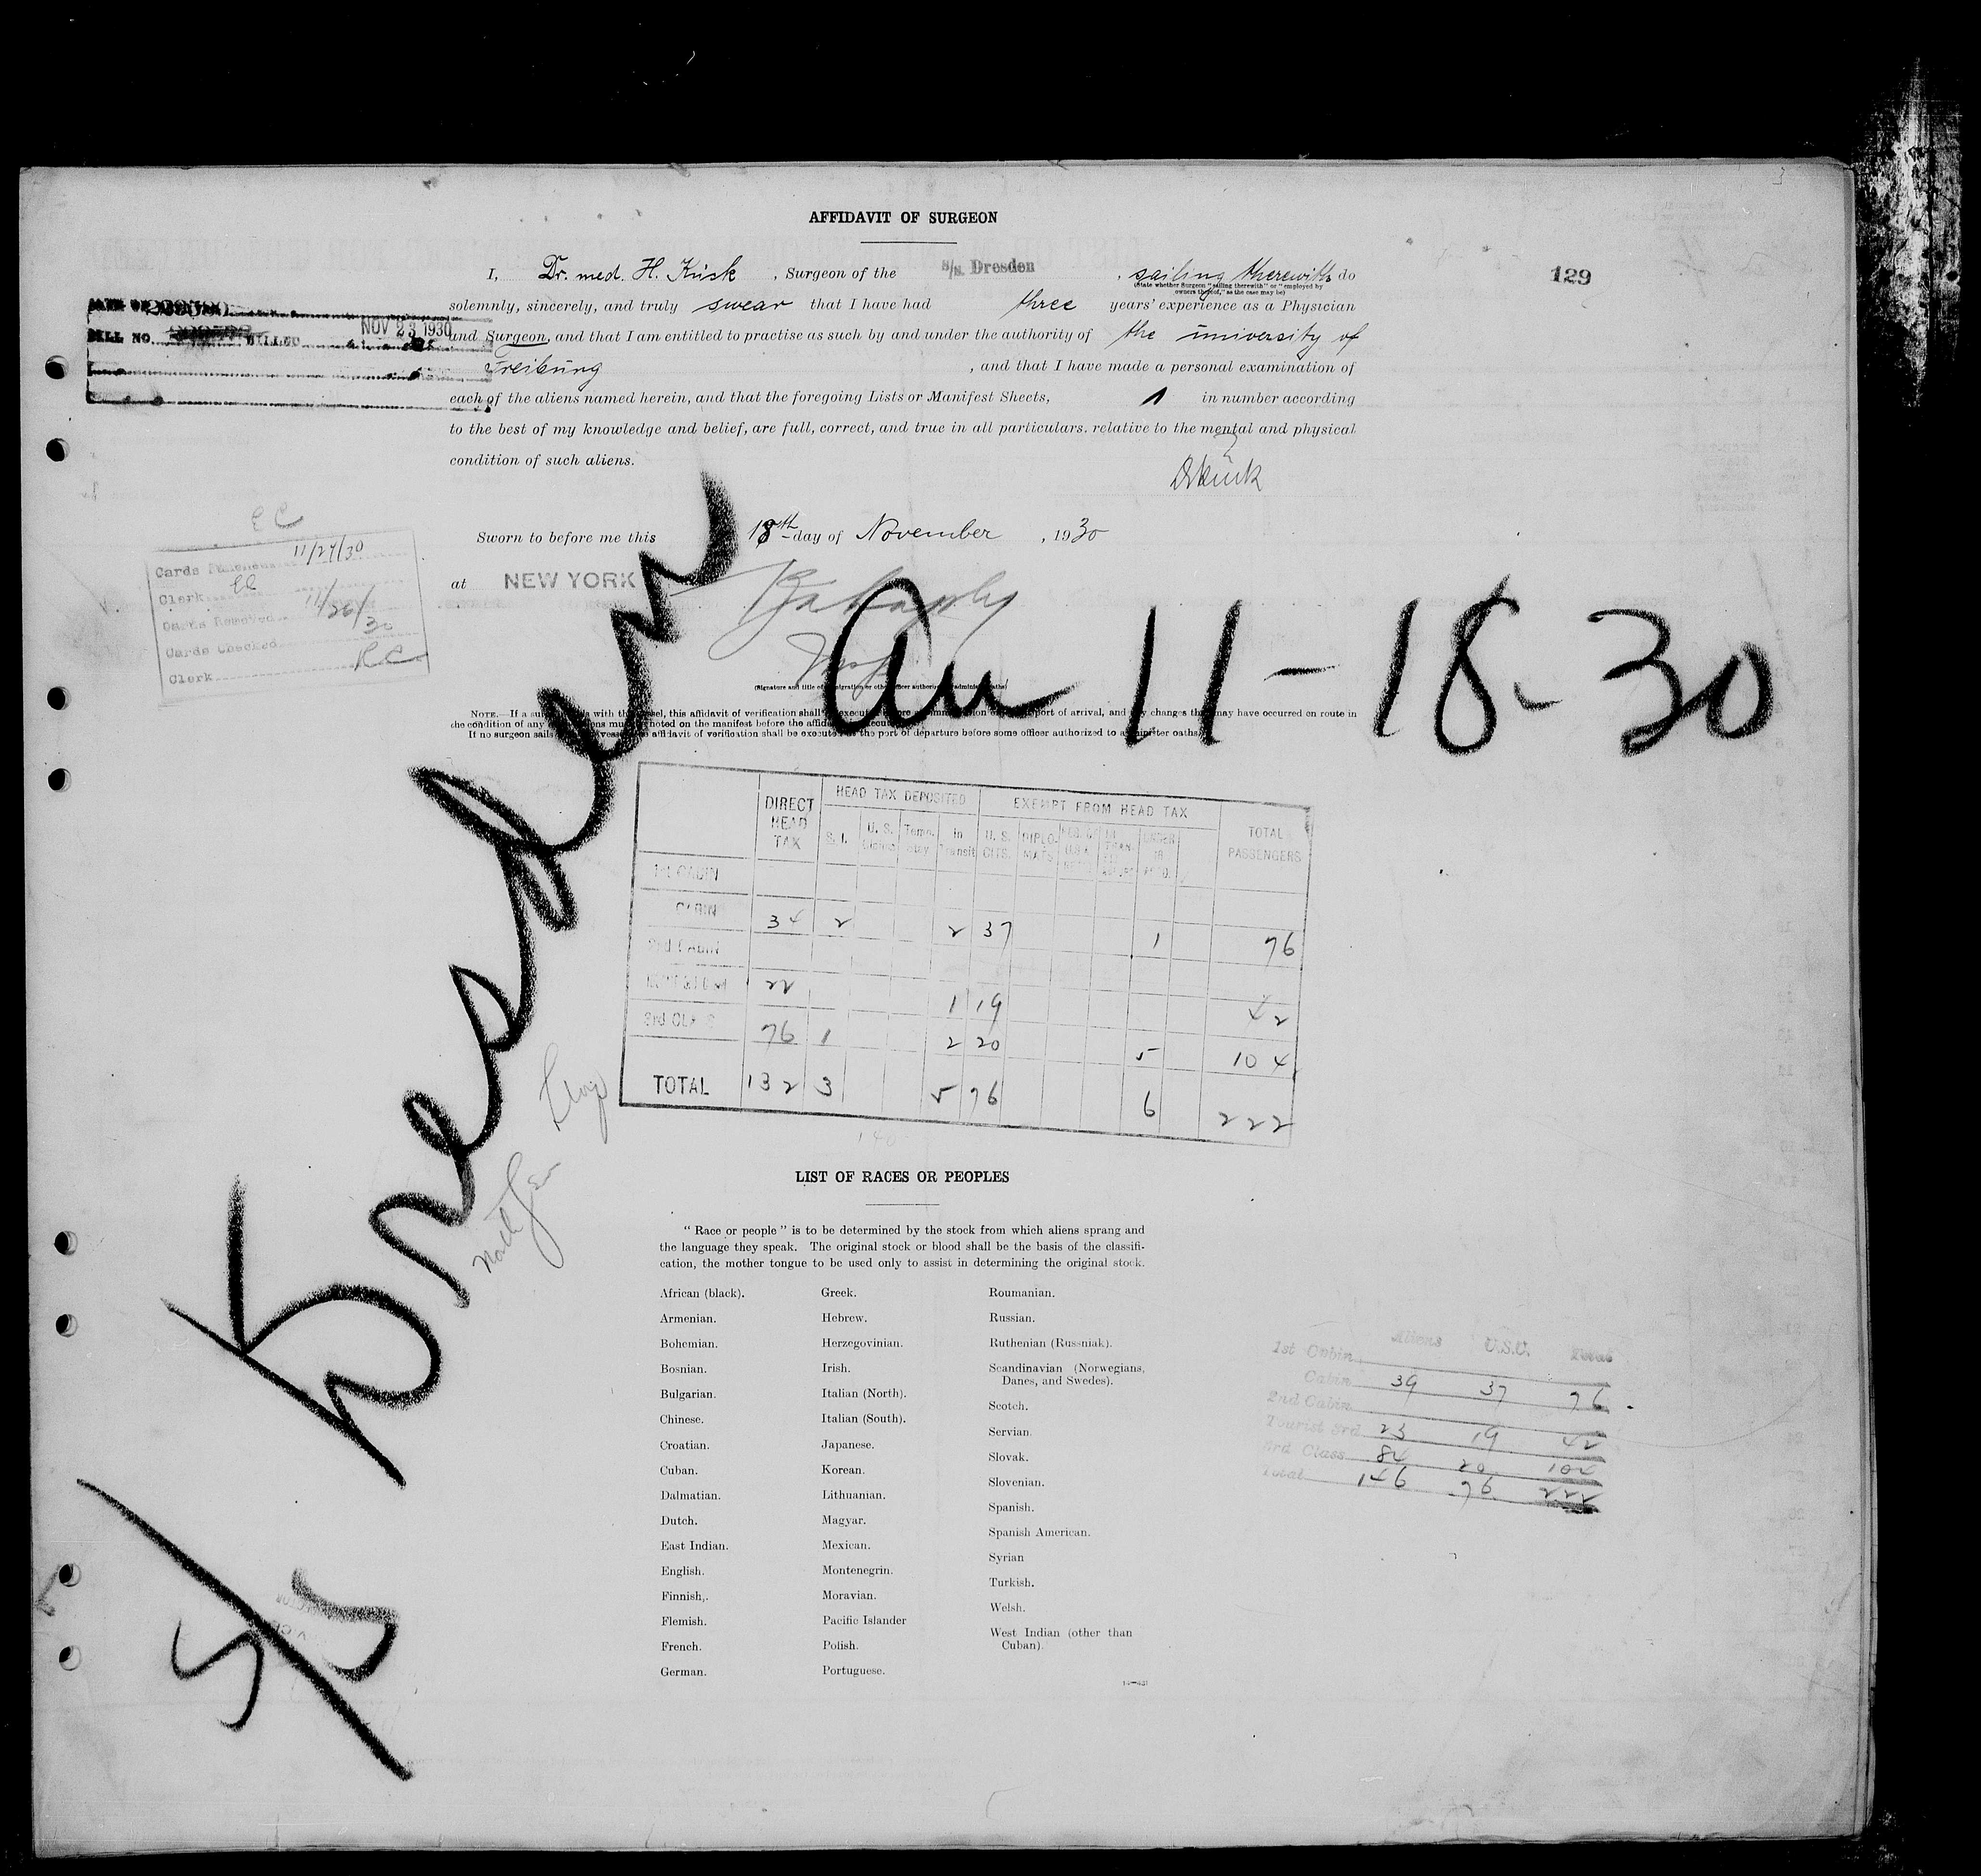 AFFIDAVIT OF SURGEON
129
I, Dr. med. H. Kück, Surgeon of the S/s. Dresden, sailing therewith do
(State whether Surgeon "sailing therewith" or "employed by
owners thereof," as the case may be)
solemnly, sincerely, and truly swear that I have had three years' experience as a Physician
and Surgeon, and that I am entitled to practise as such by and under the authority of the university of
Freiburg, and that I have made a personal examination of
each of the aliens named herein, and that the foregoing Lists or Manifest Sheets, 1 in number according
to the best of my knowledge and belief, are full, correct, and true in all particulars. relative to the mental and physical
condition of such aliens.
BILL NO. BILLED NOV 23 1930
Sworn to before me this 18th day of November, 1930
at NEW YORK
E C
Cards Punched 11/24/30
Clerk EC
Cards Removed 11/26/30
Cards Checked
Clerk RC
S/S Dresden
Arr 11-18-30
(Signature and title of immigration or other officer authorized to administer oaths)
NOTE.—If a surgeon sails with the vessel, this affidavit of verification shall be executed before an immigration officer at port of arrival, and any changes that may have occurred on route in
the condition of any aliens must be noted on the manifest before the affidavit is executed.
If no surgeon sails with the vessel, the affidavit of verification shall be executed at the port of departure before some officer authorized to administer oaths.
DIRECT HEAD TAX
HEAD TAX DEPOSITED
EXEMPT FROM HEAD TAX
TOTAL PASSENGERS
S. I. U. S. Temp. Stay In Transit U. S. CITS. DIPLOMATS UNDER 16
1st CABIN
CABIN 34 2 2 37 1 76
2nd CABIN
22 1 19 42
3rd CLASS 76 1 2 20 5 104
TOTAL 132 3 5 76 6 222
140
North Ger Lloyd
LIST OF RACES OR PEOPLES
"Race or people" is to be determined by the stock from which aliens sprang and
the language they speak. The original stock or blood shall be the basis of the classifi-
cation, the mother tongue to be used only to assist in determining the original stock.
African (black).
Armenian.
Bohemian.
Bosnian.
Bulgarian.
Chinese.
Croatian.
Cuban.
Dalmatian.
Dutch.
East Indian.
English.
Finnish,.
Flemish.
French.
German.
Greek.
Hebrew.
Herzegovinian.
Irish.
Italian (North).
Italian (South).
Japanese.
Korean.
Lithuanian.
Magyar.
Mexican.
Montenegrin.
Moravian.
Pacific Islander
Polish.
Portuguese.
Roumanian.
Russian.
Ruthenian (Russniak).
Scandinavian (Norwegians,
Danes, and Swedes).
Scotch.
Servian.
Slovak.
Slovenian.
Spanish.
Spanish American.
Syrian
Turkish.
Welsh.
West Indian (other than
Cuban).
Aliens U.S.C. Total
1st Cabin
Cabin 39 37 76
2nd Cabin
Tourist 3rd 23 19 42
3rd Class 84 20 104
Total 146 76 222